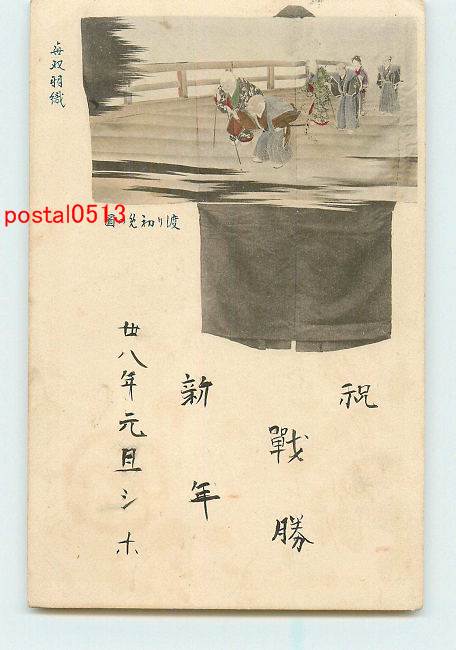 無双羽織
渡り初めの圖
postal0513
祝
戰勝
新年
廿八年元旦シホ